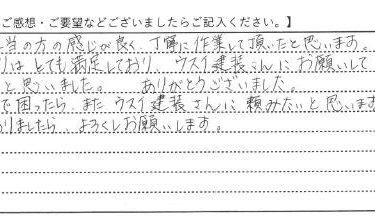 ご感想・ご要望などございましたらご記入ください。】
当の方の感じが良く、丁寧に作業して頂いたと思います。
はとても満足しており、ウスイ建装さんにお願いして
と思いました。 ありがとうございました。
で困ったら、また ウスイ建装さんに頼みたいと思います
りましたら、よろしくお願いします。